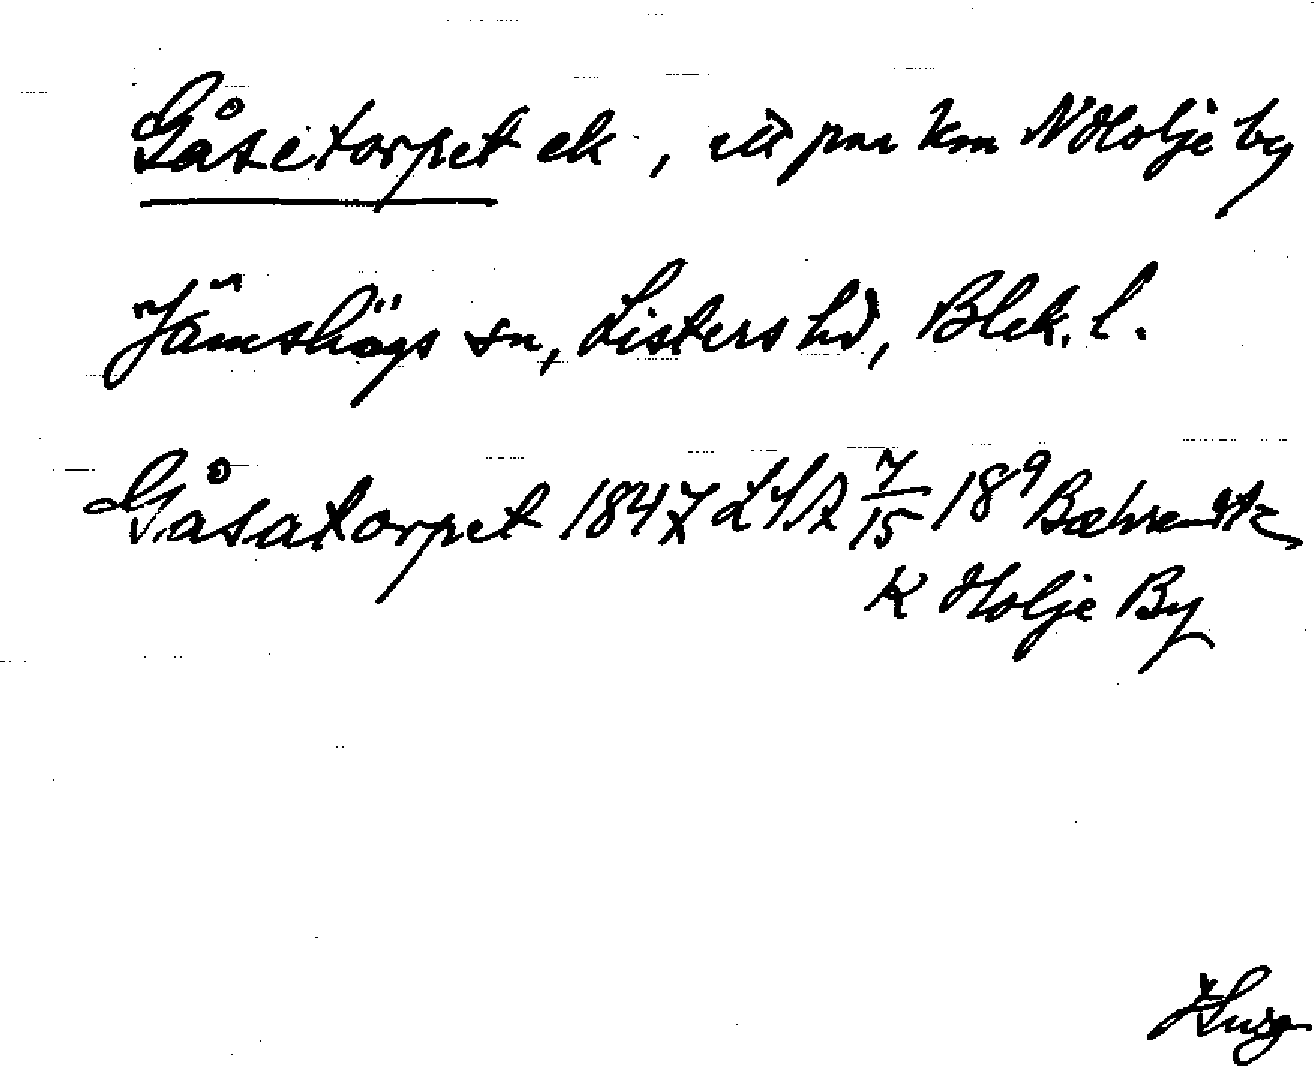 Gåsetorpet ek, ett par km N Holje by
Jämshögs sn, Listers hd, Blek. l.
Gåsatorpet 1847 LSA 7/15 18⁹
K Holje By